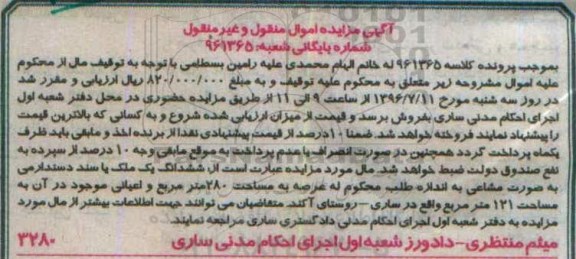 آگهی مزایده اموال منقول و غیر منقول
شماره بایگانی شعبه: ۹۶۱۳۶۵
بموجب پرونده کلاسه ۹۶۱۳۶۵ له خانم الهام محمدی علیه رامین بسطامی با توجه به توقیف مال از محکوم
علیه اموال مشروحه زیر متعلق به محکوم علیه توقیف و به مبلغ ۸۲۰/۰۰۰/۰۰۰ ریال ارزیابی و مقرر شد
در روز سه شنبه مورخ ۱۳۹۶/۷/۱۱ از ساعت ۹ الی ۱۱ از طریق مزایده حضوری در محل دفتر شعبه اول
اجرای احکام مدنی ساری بفروش برسد و قیمت از میزان ارزیابی شده شروع و به کسانی که بالاترین قیمت
را پیشنهاد نمایند فروخته خواهد شد. ضمنا ۱۰درصد از قیمت پیشنهادی نقدا از برنده اخذ و مابقی باید ظرف
یکماه پرداخت گردد همچنین در صورت انصراف یا عدم پرداخت به موقع مابقی وجه ۱۰ درصد از سپرده به
نفع صندوق دولت ضبط خواهد شد. مال مورد مزایده عبارت است از: ششدانگ یک ملک با سند دستدارمی
به صورت مشاعی به اندازه طلب محکوم له عرصه به مساحت ۲۸۰متر مربع و اعیانی موجود در آن به
مساحت ۱۲۱ متر مربع واقع در ساری - روستای آکند. متقاضیان می توانند جهت اطلاعات بیشتر از مال مورد
مزایده به دفتر شعبه اول اجرای احکام مدنی دادگستری ساری مراجعه نمایند.
میثم منتظری-دادورز شعبه اول اجرای احکام مدنی ساری ۳۲۸۰